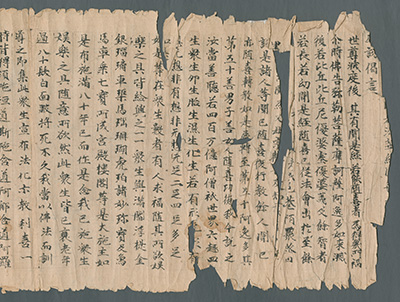 而說偈言
世尊滅度後 其有聞是經 若能隨喜者 為得幾所福
尒時佛告弥勒菩薩摩訶薩阿逸多如來滅
後若比丘比丘尼優婆塞優婆夷及餘智者
若長若幼聞是經隨喜已從法會出至於餘
是諸人等聞已隨喜復行教餘人聞已
亦隨喜轉教如是展轉至第五十阿逸多其
第五十善男子善女人隨喜功德我今說之
汝當善聽若四百万億阿僧祇世界六趣四
生衆生卵生胎生濕生化生若有形
想非有想非無想無足二足四足多足
如是等在衆生數者有人求福隨其所欲娛
樂之具皆給與之一一衆生與滿閻浮提金
銀瑠璃車璩馬瑙珊瑚琥珀諸妙珍寶及象
馬車乘七寶所成宮殿樓閣等是大施主如
是布施滿八十年已而作是念我已施衆生
娛樂之具隨意所欲然此衆生皆已衰老年
過八十髮白面皺將死不久我當以佛法而訓
導之即集此衆生宣布法化示教利喜一
時皆得須陀洹道斯陀含道阿那含道阿羅